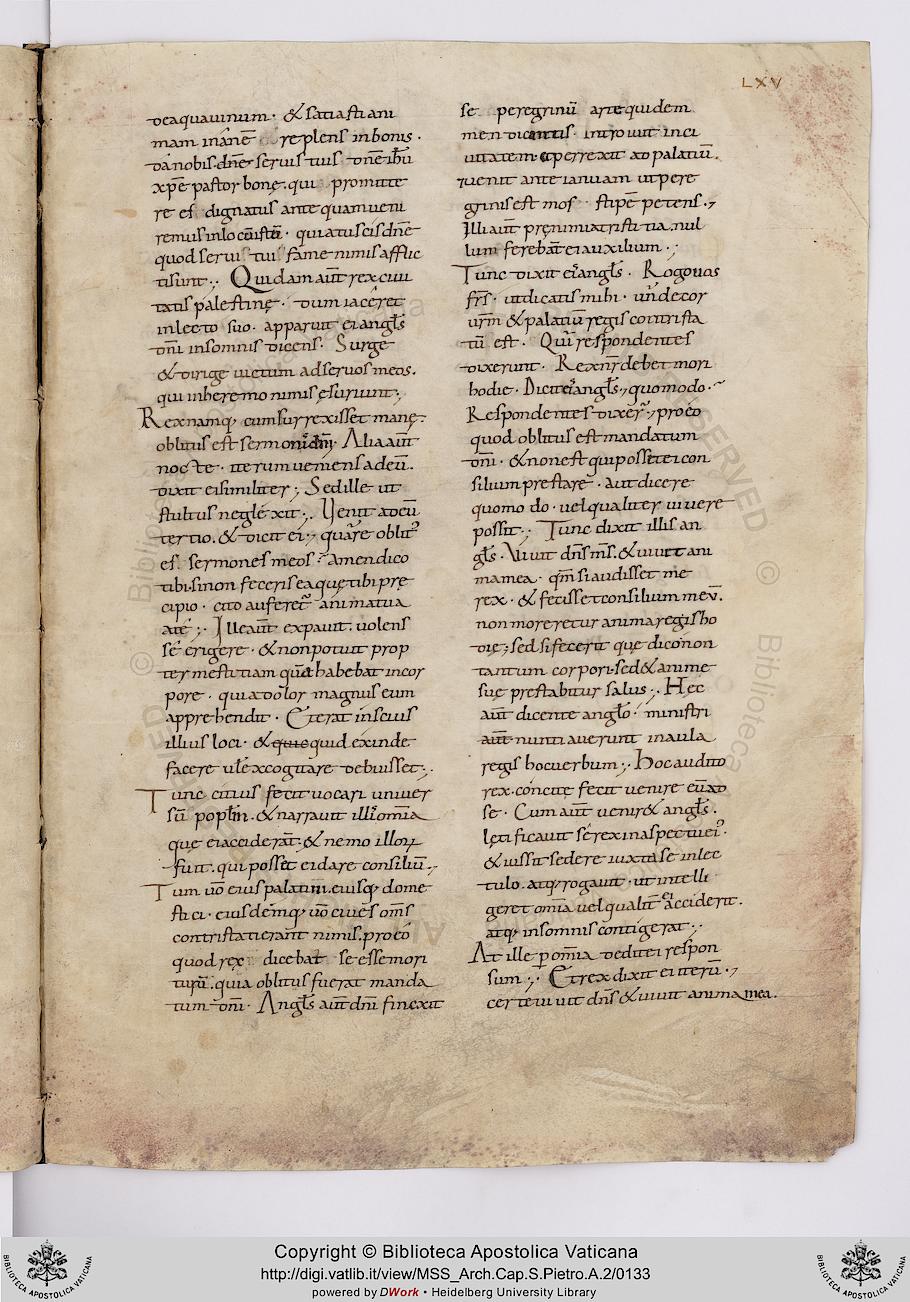 LXV
de aqua uinum · & satiasti ani
mam inanē replens in bonis ·
da nobis dn̄e seruis tuis dn̄e ihū
xp̄e pastor bonę qui promitte
re es dignatus antequam ueni
remus in locū istū · quia tu scis dn̄e
quod serui tui fame nimis afflic
ti sunt ;. Quidam aūt rex ciui
tatis palestinę · dum iaceret
in lecto suo · apparuit ei angl̄s
dn̄i in somnis dicens · Surge
& dirige uictum ad seruos meos ·
qui in heremo nimis ęsuriunt ;.
Rex namq; cum surrexisset mane ·
oblitus est sermonis dn̄i · Alia aūt
nocte · iterum ueniens ad eū ·
dixit ei similiter ; Sed ille ut
stultus neglexit ;. Uenit ad eū
tertio · & dicit ei ; quare oblit᾽
es sermones meos · amen dico
tibi si non feceris ea quę tibi prę
cipio · cito auferet᾽ anima tua
a te ;. Ille aūt expauit · uolens
se erigere · & non potuit prop
ter mestitiam quā habebat in cor
pore · quia dolor magnus eum
apprehendit · Et erat inscius
illius loci · & quid exinde
facere uł excogitare debuisset ;.
Tunc citius fecit uocari uniuer
sū popłm · & narrauit illi om̄ia
que ei acciderāt · & nemo illoꝝ
fuit · qui posset ei dare consiliū ·
Tum ūo eius palatini · eiusq; dome
stici · eiusdemq; ūo ciues om̄s
contristati erant nimis · pro eo
quod rex dicebat se esse mori
turū · quia oblitus fuerat manda
tum dn̄i · Angl̄s aūt dn̄i finexit
se peregrinū arte quidem
mendicantis · introiuit in ci
uitatem & perrexit ad palatiū ·
uenit ante ianuam ut pere
grinis est mos · stipē petens ·
Illi aūt prę nimia tristitia nul
lum ferebāt ei auxilium · ;
Tunc dixit ei angl̄s · Rogo uos
fr̄s · ut dicatis mihi · unde cor
ur̄m & palatiū regis contrista
tū est · Qui respondentes
dixerunt · Rex nr̄ debet mori
hodie · Dicit ei angl̄s ; quomodo ·
Respondentes dixer᾽ ; pro eo
quod oblitus est mandatum
dn̄i · & non est qui posset ei con
silium prestare · aut dicere
quomodo · uel qualiter uiuere
possit ;. Tunc dixit illis an
gl̄s · Uiuit dn̄s m̄s · & uiuit ani
ma mea · qm̄ si audisset me
rex · & fecisset consilium meū ·
non moreretur anima regis ho
die ; sed si fecerit que dico · non
tantum corpori · sed & anime
sue prestabitur salus ;. Hec
aūt dicente anglo · ministri
aūt nuntiauerunt in aula
regis hoc uerbum ;. Hoc audito
rex · concite fecit uenire eū ad
se · Cum aūt uenir& angl̄s ·
lętificauit se rex in aspectu ei᾽ ·
& iussit sedere iuxta se in lec
tulo · atq; rogauit · ut intelli
geret om̄ia uel qualit᾽ ei acciderit ·
atq; in somnis contigerat ;.
At ille p om̄ia dedit ei respon
sum ;. Et rex dixit ei iterū ·
certe uiuit dn̄s & uiuit anima mea ·
Copyright © Biblioteca Apostolica Vaticana
http://digi.vatlib.it/view/MSS_Arch.Cap.S.Pietro.A.2/0133
powered by DWork • Heidelberg University Library